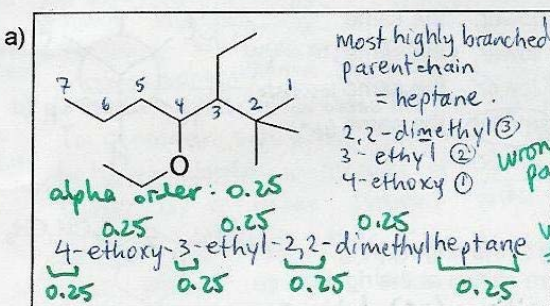 a)
most highly branched
parent chain
= heptane.
2,2-dimethyl ③
3-ethyl ②
4-ethoxy ①
7 6 5 4 3 2 1
O
alpha order: 0.25
0.25 0.25 0.25
4-ethoxy-3-ethyl-2,2-dimethylheptane
0.25 0.25 0.25 0.25